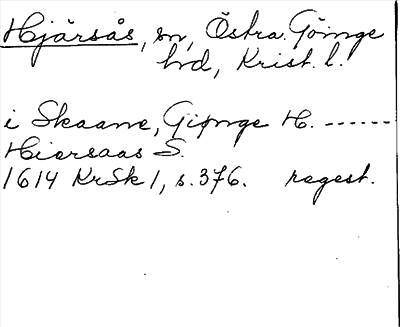 Hjärsås, sn, Östra Göinge
hd, Krist. l.
i Skaane, Giønge H. ------
Hiersaas S.
1614 KrSk 1, s. 376. regest.